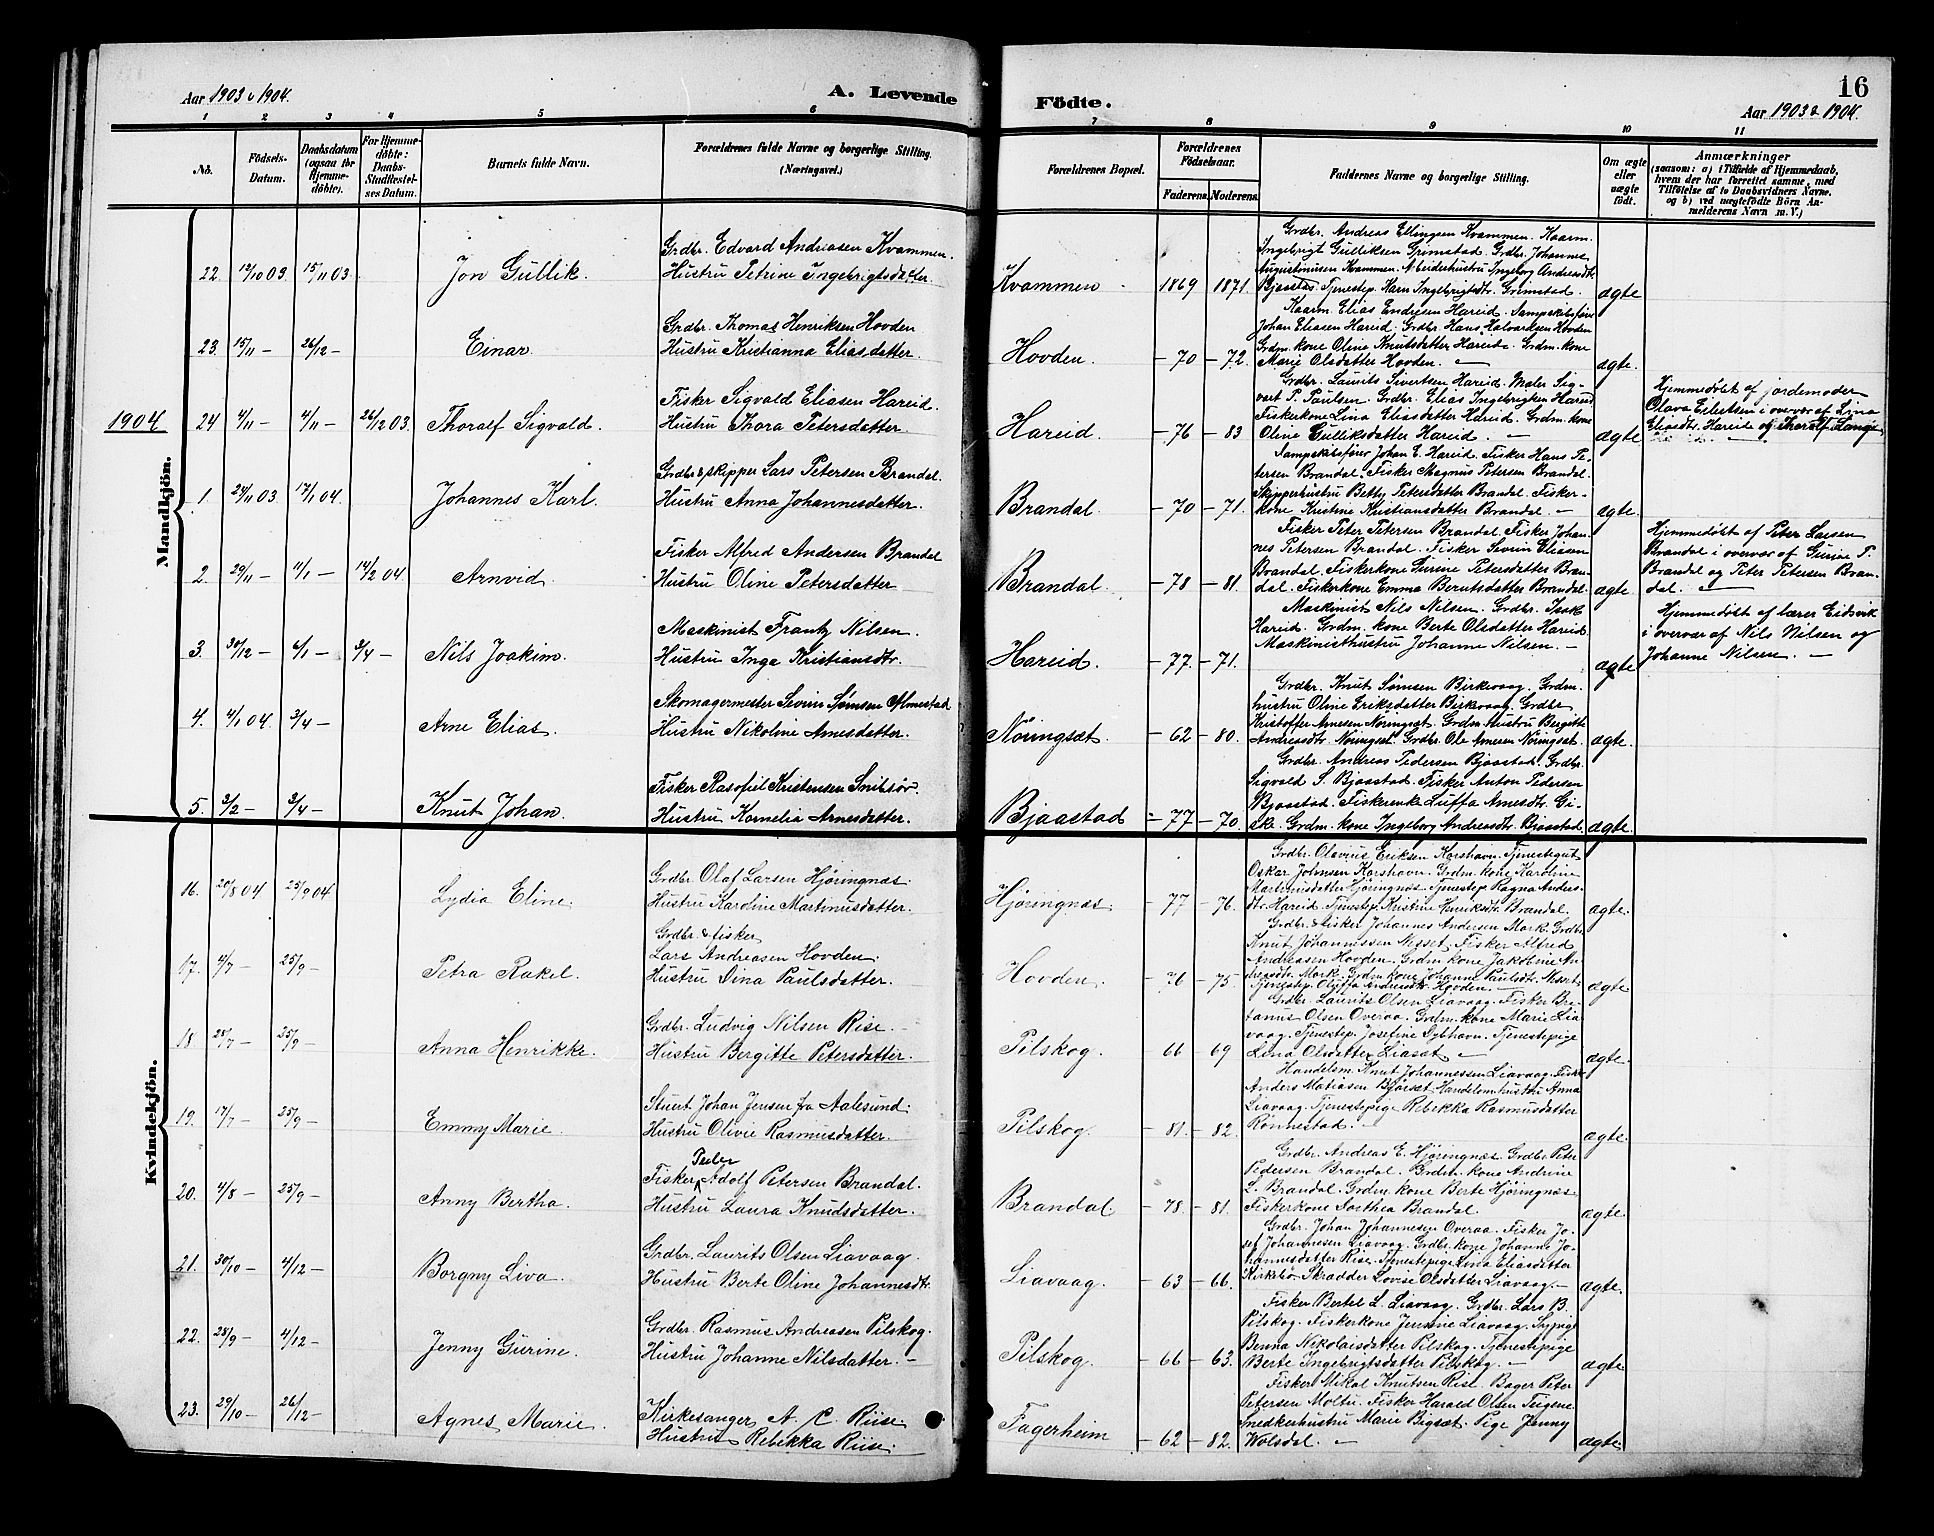 16
Aar 1903 & 1904.
A. Levende Födte.
Aar 1903 & 1904.
1 2 3 4 5 6 7 8 9 10 11
No.
Födsels-Datum.
Daabsdatum (ogsaa for Hjemme-döbte).
For Hjemme-döbte: Daabs-Stadfæstel-ses Datum.
Barnets fulde Navn.
Forældrenes fulde Navne og borgerlige Stilling. (Næringsvei.)
Forældrenes Bopæl.
Forældrenes Födselsaar.
Faderens. Moderens.
Faddernes Navne og borgerlige Stilling.
Om ægte eller uægte födt.
Anmærkninger
(saasom: a) i Tilfælde af Hjemmedaab, hvem der har forrettet samme, med Tilföielse af to Daabsvidners Navne. og b) ved uægtefödte Börn An-melderens Navn m. V.)
Mandkjön.
22. 12/10 03. 15/11 03. Jon Gullik.
Grdbr. Edvard Andreasen Kvammen.
Hustru Petrine Ingebrigtsdatter.
Kvammen 1869 1871.
Grdbr. Andreas Ellingsen Kvammen. Kaarm.
Ingebrigt Gulliksen Grimstad. Grdbr. Johannes
Augustinusen Kvammen. Arbeiderhustru Ingeborg Andreasdtr.
Bjaastad. Tjenestep. Karn Ingebrigtsdtr. Grimstad.
ægte
23. 15/11 — 26/12 — Einar.
Grdbr. Thomas Henriksen Hovden
Hustru Kristianna Eliasdatter.
Hovden. — 70 — 72.
Kaarm. Elias Endresen Hareid. Dampskibsfører
Johan Eliasen Hareid. Grdbr. Hans Halvorsen Hovden
Grdm. kone Oline Knutsdatter Hareid. Grdm. kone
Marie Olsdatter Hovden. —
ægte.
1904
24 4/11 — 4/11 — 26/12 03. Thoralf Sigvald.
Fisker Sigvald Eliasen Hareid.
Hustru Thora Petersdatter
Hareid. — 76 — 83
Grdbr. Laurits Sivertsen Hareid. Maler Sig-
vart P. Paulsen. Grdbr. Elias Ingebrigtsen Hareid
Fiskerkone Lina Eliasdatter Hareid. Grdm. kone
Oline Gulliksdatter Hareid. —
ægte
Hjemmedøbt af jordemoder
Olava Eilertsen i overvær af Lina
Eliasdtr. Hareide og Thoralf Lange
1. 24/11 03 17/1 04. Johannes Karl.
Grdbr & skipper Lars Petersen Brandal.
Hustru Anna Johannesdatter.
Brandal — 70 — 71.
Dampskibsfører Johan E. Hareid. Fisker Hans Pe-
tersen Brandal. Fisker Magnus Petersen Brandal.
Skipperhustru Betty Petersdatter Brandal. Fisker-
kone Kristine Kristiansdatter Brandal. —
ægte.
2. 29/11 — 11/1 — 14/2 04. Arnvid.
Fisker Alfred Andersen Brandal
Hustru Oline Petersdatter
Brandal. — 78 — 81.
Fisker Peter Petersen Brandal. Fisker Johan-
nes Petersen Brandal. Fisker Severin Eliasen
Brandal. Fiskerkone Gurine Petersdatter Bran-
dal. Fiskerkone Emma Berntsdatter Brandal.
ægte
Hjemmedøbt af Peter Larsen
Brandal i overvær af Gurine P.
Brandal og Peter Petersen Bran-
dal. —
3. 30/12 — 6/1 — 3/4 — Nils Joakim.
Maskinist Frantz Nilsen.
Hustru Inga Kristiansdtr.
Hareid. — 77 — 71.
Maskinist Nils Nilsen. Grdbr. Isak
Hareid. Grdm. kone Berte Olsdatter Hareid
Maskinisthustru Johanne Nilsen. —
ægte
Hjemmedøbt af lærer Eidsvik
i overvær af Nils Nilsen og
Johanne Nilsen. —
4. 4/1 04. 3/4 — Arne Elias.
Skomagermester Sivert Sørnsen Almestad
Hustru Nikoline Arnesdatter.
Nöringsæt. — 62 — 80.
Grdbr. Knut Sørnsen Birkevaag. Grdm.
hustru Oline Eriksdatter Birkevaag. Grdbr
Kristoffer Arnesen Nöringsæt. Grdm. hustru Bergitte
Andreasdtr. Nöringsæt. Grdbr. Ole Arnesen Nöringsæt.
ægte.
5. 3/2 — 3/4 — Knut Johan.
Fisker Rasofiel Kristensen Snibsör.
Hustru Kornelia Arnesdatter.
Bjaastad — 77 — 70.
Grdbr. Andreas Pedersen Bjaastad. Grdbr.
Sigvald S. Bjaastad. Fisker Anton Pedersen
Bjaastad. Fiskerenke Luffa Arnesdtr. Gi-
ske. Grdm. kone Ingeborg Andreasdtr. Bjaastad
ægte.
Kvindekjön.
16. 20/8 04 25/9 04 Lydia Eline.
Grdbr. Olaf Larsen Hjöringnæs.
Hustru Karoline Martinusdatter.
Hjöringnæs. — 77 — 76.
Grdbr. Olavius Eriksen Korshavn. Tjenestegut
Oskar Johnsen Korshavn. Grdm. kone Karoline
Martinusdatter Hjöringnæs. Tjenestep. Ragna Anders-
dtr. Hareid. Tjenestep. Kristine Henriksdtr. Brandal.
ægte.
17. 4/7 — 25/9 — Petra Rakel.
Grdbr. & fisker
Lars Andreasen Hovden.
Hustru Dina Paulsdatter.
Hovden. — 76 — 75.
Grdbr. & fisker Johannes Andersen Mork. Grdbr.
Knut Johannessen Nesset. Fisker Alfred
Andreasen Hovden. Grdm. kone Jakobine An-
dreasdtr. Mork. Grdm. kone Johanne Paulsdtr. Nesset.
Tjenestep. Olyffa Andreasdtr. Hovden. —
ægte
18. 25/7 — 25/9 — Anna Henrikke.
Grdbr. Ludvig Nilsen Rise. —
Hustru Bergitte Petersdatter.
Pilskog. 66 — 69
Grdbr. Laurits Olsen Liavaag. Fisker Be-
tanus Olsen Overaa. Grdm. kone Marie Lia-
vaag. Tjenestep. Josefine Dybhavn. Tjenestepige
Lina Olsdatter Liasæt —
ægte.
19. 17/7 — 25/9 — Emmy Marie.
Stuert Johan Jensen fra Aalesund.
Hustru Olivie Rasmusdatter.
Pilskog. 81. — 82.
Handelsm. Knut Johannessen Liavaag. Fisker
Anders Matiasen Bjørsæt. Handelsmhustru Anna
Liavaag. Tjenestepige Rebekka Rasmusdatter
Rønnestad. —
ægte.
20. 4/8 — 25/9 — Anny Bertha.
Peder
Fisker Adolf Petersen Brandal.
Hustru Laura Knudsdatter.
Brandal — 78. — 81.
Grdbr. Andreas E. Hjöringnæs. Grdbr Peter
Pedersen Brandal. Grdm. kone Andrine
L. Brandal. Grdm. kone Berte Hjöringnæs
Fiskerkone Dorthea Brandal.
ægte.
21. 30/10 — 4/12 — Borgny Liva.
Grdbr. Laurits Olsen Liavaag.
Hustru Berte Oline Johannesdtr.
Liavaag. — 63 — 66.
Grdbr. Johan Johannesen Overaa. Fisker Jo-
sef Johannesen Liavaag. Grdbr. kone Johanne Jo-
hannesdatter Rise. Tjenestepige Lina Eliasdatter
Kirkebö. Skrædder Lovise Olsdatter Liavaag. —
ægte.
22. 28/9 — 4/12 — Jenny Gurine.
Grdbr. Rasmus Andreasen Pilskog.
Hustru Johanne Nilsdatter. —
Pilskog. — 66 — 63.
Fisker Bertel L. Liavaag. Grdbr. Lars B.
Pilskog. Fiskerkone Jensine Liavaag. Sypige
Benna Nikolaisdatter Pilskog. Tjenestepige
Berte Ingebrigtsdatter Pilskog. —
ægte
23. 29/10 — 26/12 — Agnes Marie.
Kirkesanger A. C. Riise.
Hustru Rebekka Riise.
Fagerheim — 62 — 82.
Fisker Mikal Knutsen Rise. Bager Peter
Petersen Moltu. Fisker Harald Olsen Teigene
Snedkerhustru Marie Bigsæt. Pige Jenny
Wolsdal. —
ægte